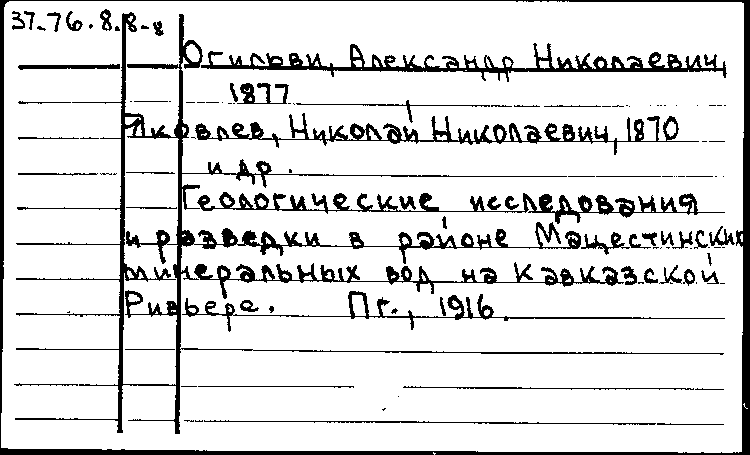 37-76.8.8-8
Огильви, Александр Николаевич,
1877
Яковлев, Николай Николаевич, 1870
и др.
Геологические исследования
и разведки в районе Мацестинских
минеральных вод на Кавказской
Ривьере. Пг., 1916.